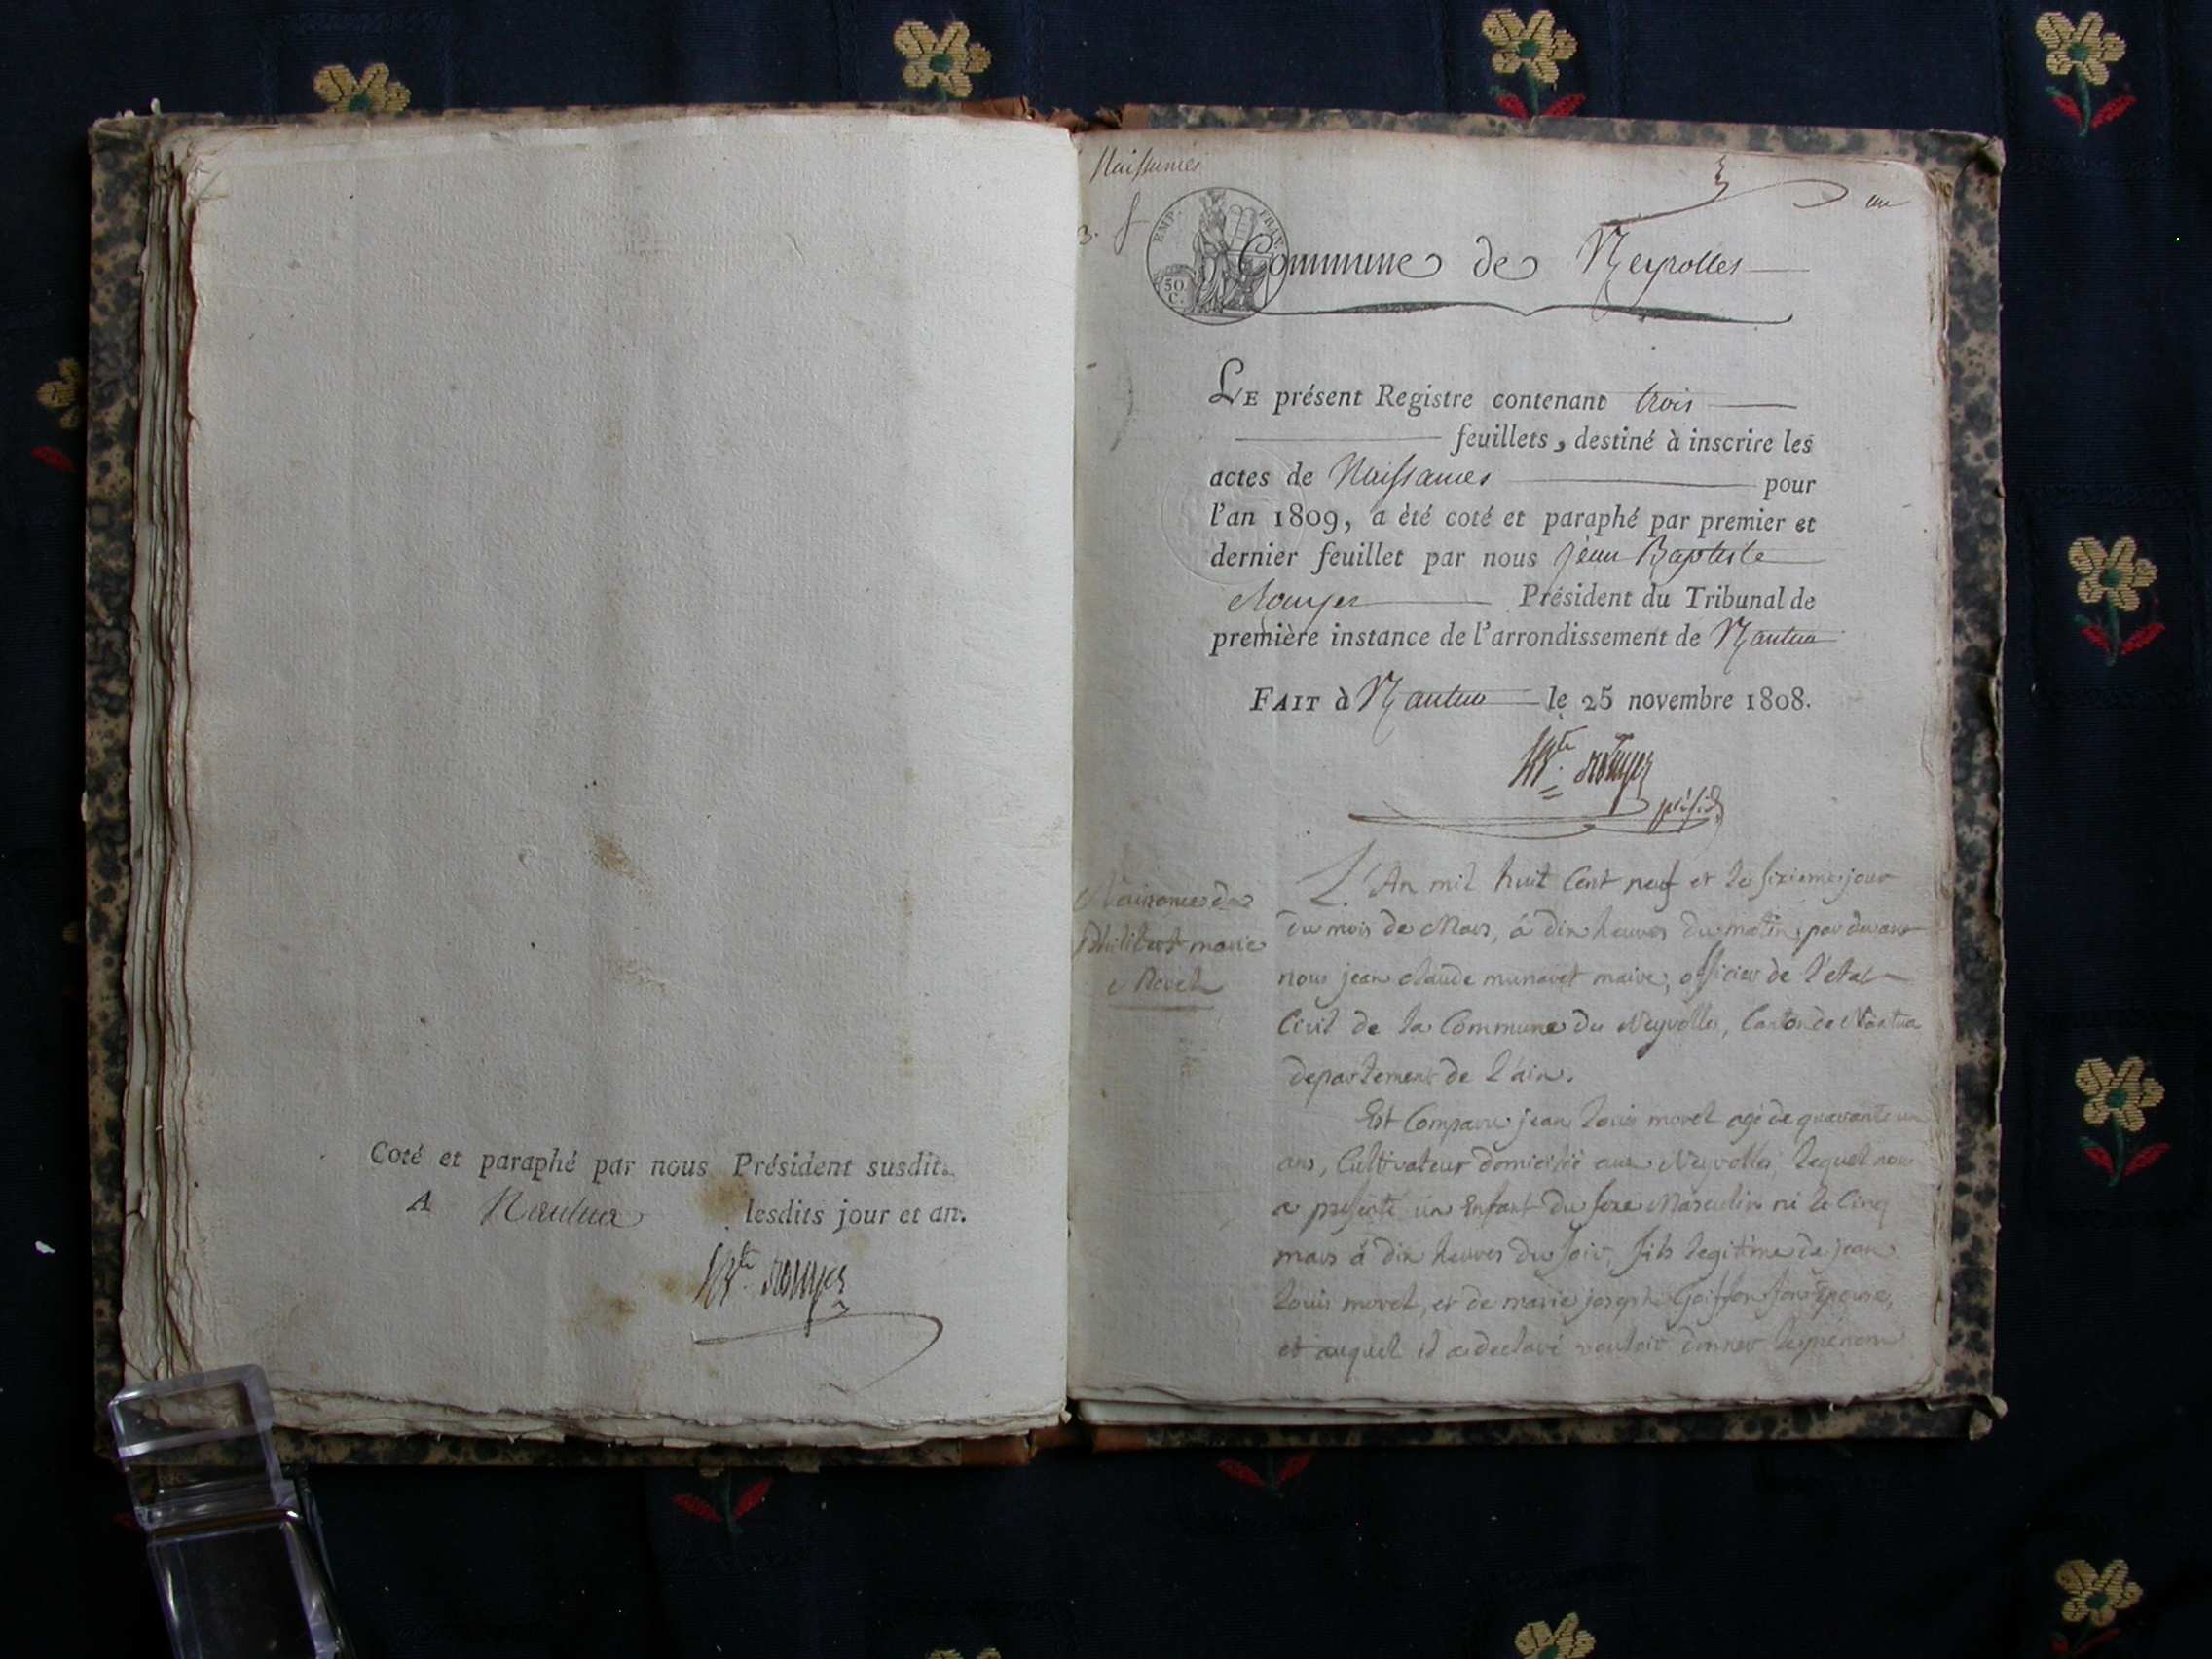 Coté et paraphé par nous Président susdit.
A Nantua lesdits jour et an.
Bte. Rouyer
Naissances
3. f
EMP. FRAN.
50 C.
Commune de Neyrolles
LE présent Registre contenant trois
feuillets, destiné à inscrire les
actes de Naissances pour
l'an 1809, a été coté et paraphé par premier et
dernier feuillet par nous jean Baptiste
Rouyer Président du Tribunal de
première instance de l'arrondissement de Nantua
FAIT à Nantua le 25 novembre 1808.
Bte. Rouyer
présid
Naissance de
Philibert marie
Morel
L'An mil huit Cent neuf et le sixieme jour
du mois de Mars, à dix heures du matin; par devant
nous jean claude munaret maire, officier de l'état
Civil de la Commune du Neyrolles, Canton de Nantua
departement de l'ain.
Est Comparu jean Louis morel agé de quarante un
ans, Cultivateur domicilié aux Neyrolles, lequel nous
a presenté un Enfant du sexe Masculin né le Cinq
mars à dix heures du soir, fils legitime de jean
Louis morel, et de marie joseph Goiffon son épouse,
et auquel il a declaré vouloir donner le prénom